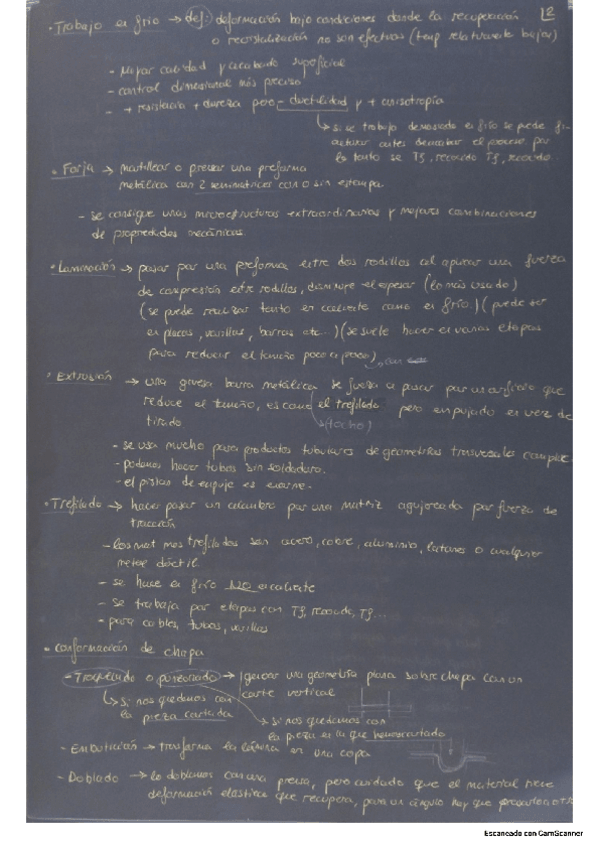 · Trabajo en frío → def: deformación bajo condiciones donde la recuperación
o recristalización no son efectivas (temp relativamente bajas)
- Mejor calidad y acabado superficial
- control dimensional más preciso
- + resistencia + dureza pero - ductilidad y + anisotropía
↳ si se trabaja demasiado en frío se puede fracturar
antes de acabar el proceso por
lo tanto se Tf, recocido Tf, recocido.
· Forja → martillear o prensar una preforma
metálica con 2 semimatrices con o sin estampa
- se consigue unas microestructuras extraordinarias y mejores combinaciones
de propiedades mecánicas.
· Laminación → pasar por una preforma entre dos rodillos al aplicar una fuerza
de compresión entre rodillos, disminuye el espesor (lo más usado)
(se puede realizar tanto en caliente como en frío.) (puede ser
en placas, varillas, barras etc...) (se suele hacer en varias etapas
para reducir el tamaño poco a poco)
· Extrusión → una gruesa barra metálica se fuerza a pasar por un orificio que
reduce el tamaño, es como el trefilado pero empujado en vez de
tirado
- se usa mucho para productos tubulares de geometrías trasversales
- podemos hacer tubos sin soldadura.
- el piston de empuje es enorme.
· Trefilado → hacer pasar un alambre por una matriz agujereada por fuerza de
tracción
- los mat mas trefilados son acero, cobre, aluminio, latones o cualquier
metal dúctil
- se hace en frío NO en caliente
- se trabaja por etapas con Tf, recocido, Tf...
- para cables, tubos, varillas
· Conformación de chapa
- Troquelado o punzonado → generar una geometría plana sobre chapa con un
corte vertical
↳ si nos quedamos con
la pieza cortada
↳ si nos quedamos con
la pieza en la que hemos cortado
- Embutición → trasforma la lámina en una copa
- Doblado → lo doblamos con una prensa, pero cuidado que el material tiene
deformación elástica que recupera, para un ángulo hay que
Escaneado con CamScanner